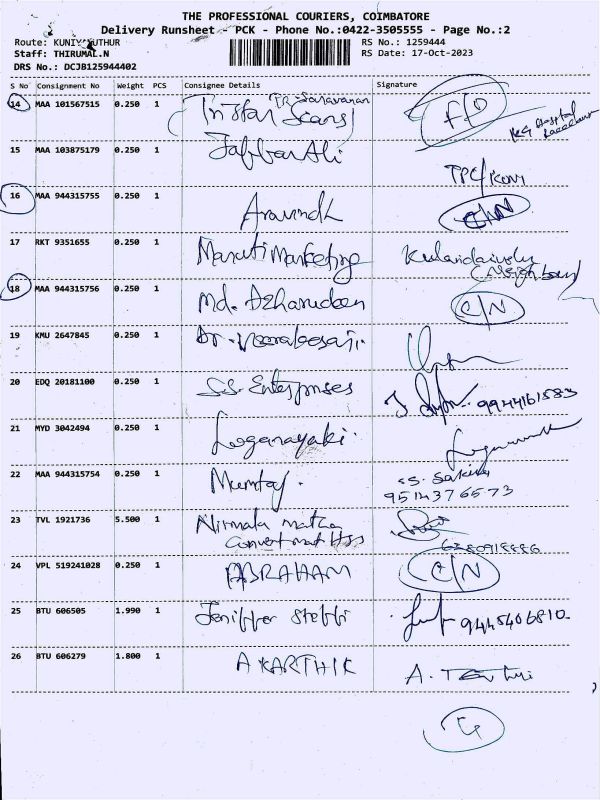 THE PROFESSIONAL COURIERS, COIMBATORE
Delivery Runsheet - PCK - Phone No.:0422-3505555 - Page No.:2
Route: KUNIYAMUTHUR RS No.: 1259444
Staff: THIRUMAL.N RS Date: 17-Oct-2023
DRS No.: DCJB125944402
S No Consignment No Weight PCS Consignee Details Signature
14 MAA 101567515 0.250 1 In Star Scans
15 MAA 103875179 0.250 1 Jabbar Ali
16 MAA 944315755 0.250 1 Aravindh C/N
17 RKT 9351655 0.250 1 Maruti Marketing
18 MAA 944315756 0.250 1 Md. Azharudeen C/N
19 KMU 2647845 0.250 1
20 EDQ 20181100 0.250 1 S.S. Enterprises 9944161583
21 MYD 3042494 0.250 1 Loganayaki.
22 MAA 944315754 0.250 1 Mumtaj. S. Sakina
9514376573
23 TVL 1921736 5.500 1 Nirmala matha
Convent mat Hss
24 VPL 519241028 0.250 1 ABRAHAM C/N
25 BTU 606505 1.990 1 Jenifper Steffi 9445406810
26 BTU 606279 1.800 1 A KARTHIK